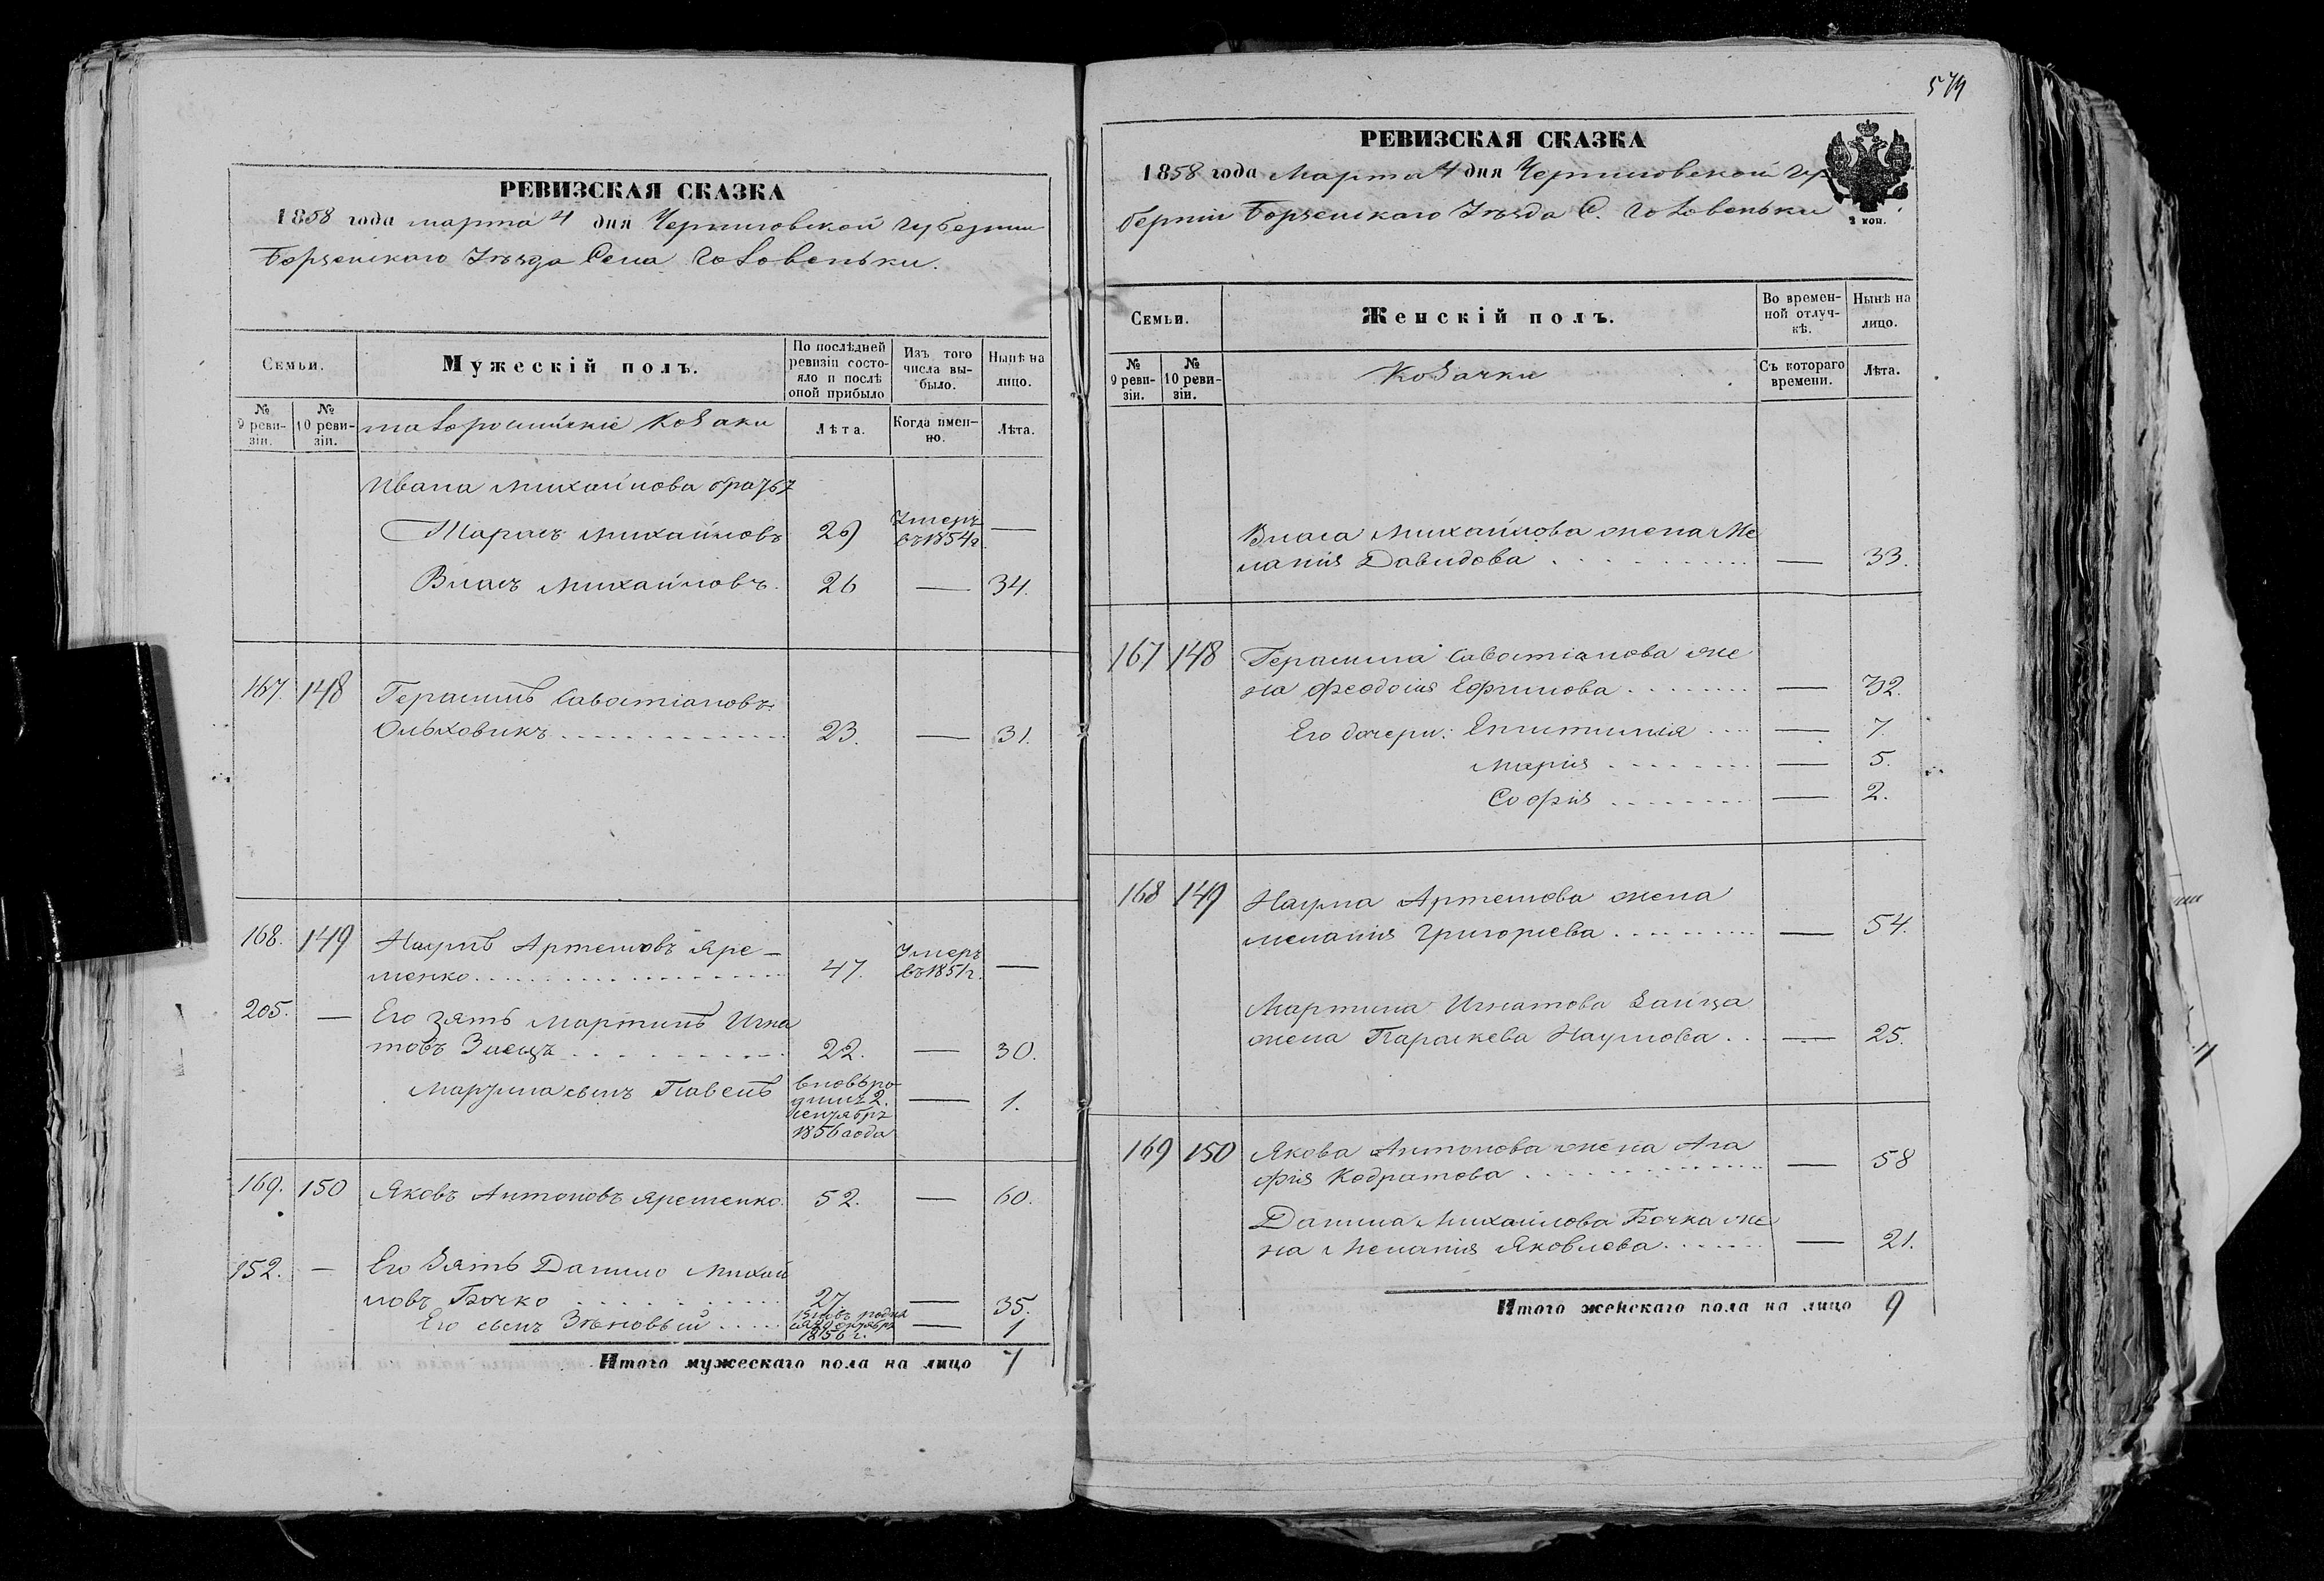 РЕВИЗСКАЯ СКАЗКА
1858 года марта 4 дня Черниговской губернии
Борзенскаго Уѣзда Села Головеньки.
Семьи.
Мужескій полъ.
По послѣдней ревизіи состояло и послѣ оной прибыло
Изъ того числа выбыло.
Нынѣ на лицо.
№ 9 ревизіи.
№ 10 ревизіи.
малороссійскіе Козаки
Лѣта.
Когда именно.
Лѣта.
Ивана Михайлова братья
Тарасъ Михайловъ 29 Умеръ въ 1854 г. —
Власъ Михайловъ. 26 — 34.
167. 148 Герасимъ Савостіановъ
Ольховикъ 23. — 31.
168. 149 Наумъ Артемовъ Яре-
менко 47. Умеръ въ 1851 г. —
205. — Его зять Мартинъ Игна
товъ Заецъ 22. — 30.
Мартина сынъ Павелъ вновь родился 2. сентября 1856 года — 1.
169. 150 Яковъ Антоновъ Яременко. 52. — 60.
152. — Его зять Данило Михай
ловъ Бочко 27 — 35.
Его сынъ Зѣновьій — 1
1856 г.
Итого мужескаго пола на лицо 7
579
РЕВИЗСКАЯ СКАЗКА
1858 года Марта 4 дня Черниговской Гу
берніи Борзенскаго Уѣзда С. Головеньки
2 коп.
Семьи.
Женскій полъ.
Во временной отлучкѣ.
Нынѣ на лицо.
№ 9 ревизіи.
№ 10 ревизіи.
Козачки
Съ котораго времени.
Лѣта.
Власа Михайлова жена Ме
ланія Давидова — 33.
167 148 Герасима Савостіанова же
на Феодосія Ефимова — 32.
Его дочери: Епитимія — 7.
Марія — 5.
Софія — 2.
168 149 Наума Артемова жена
Меланія Григоріева — 54.
Мартина Игнатова Заица
жена Параскева Наумова — 25.
169 150 Якова Антонова жена Ага
фія Кодратова — 58
Данила Михайлова Бочка же
на Меланія Яковлева — 21.
Итого женскаго пола на лицо 9